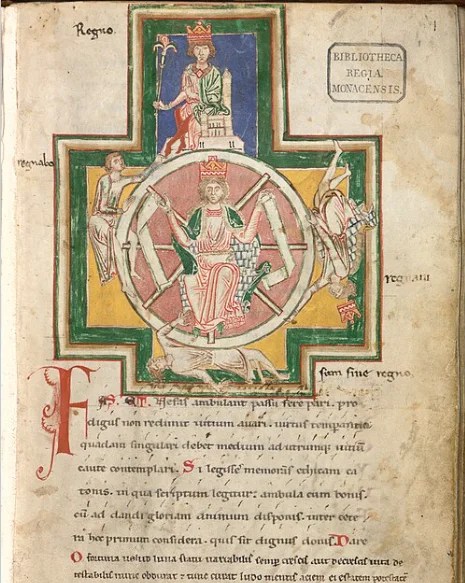 Regno.
BIBLIOTHECA
REGIA
MONACENSIS.
regnabo
regnaui
sum sine regno.
Fas et Nefas ambulant passu fere pari. pro
digus non redimit uitium auari. uirtus temperantia
quadam singulari debet medium ad utrumque uitium
caute contemplari. Si legisse memoras ethicam ca
tonis. in qua scriptum legitur. ambula cum bonis.
cum ad dandi gloriam animum disponis. inter cete
ra hoc primum considera. quis sit dignus donis. Dare
O fortuna uelud luna statu uariabilis semper crescis aut decrescis uita de
testabilis nunc obdurat et tunc curat ludo mentis aciem egestatem potestatem